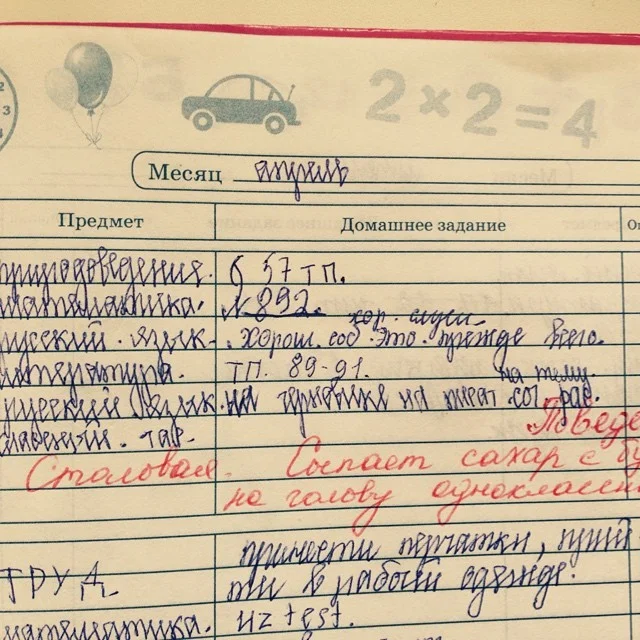 2
3
4
2×2=4
Месяц апрель
Предмет Домашнее задание
природоведения. 57 ТП.
математика. №892.
хор. слуш
русский. язык. Хорош. соб. Это прежде всего.
литература. ТП. 89-91. на тему.
русский язык. на черновике на писат. соч. рас.
Поведе
Столовая. Сыпает сахар с бу
на голову однокласни
принести перчатки, прий
ТРУД. ти в рабочй одежде.
математика. uz test.